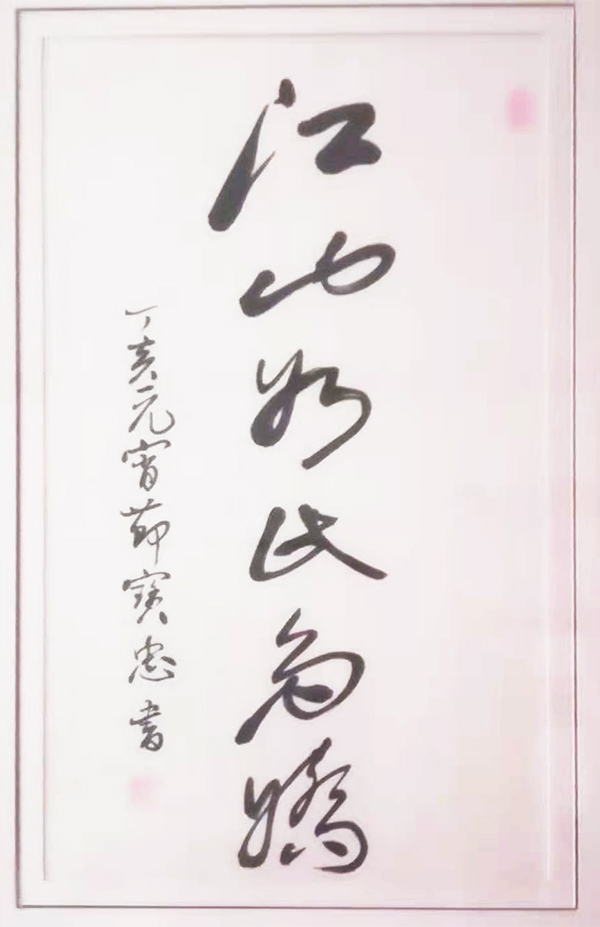 江山如此多嬌
丁亥元宵節寶忠書